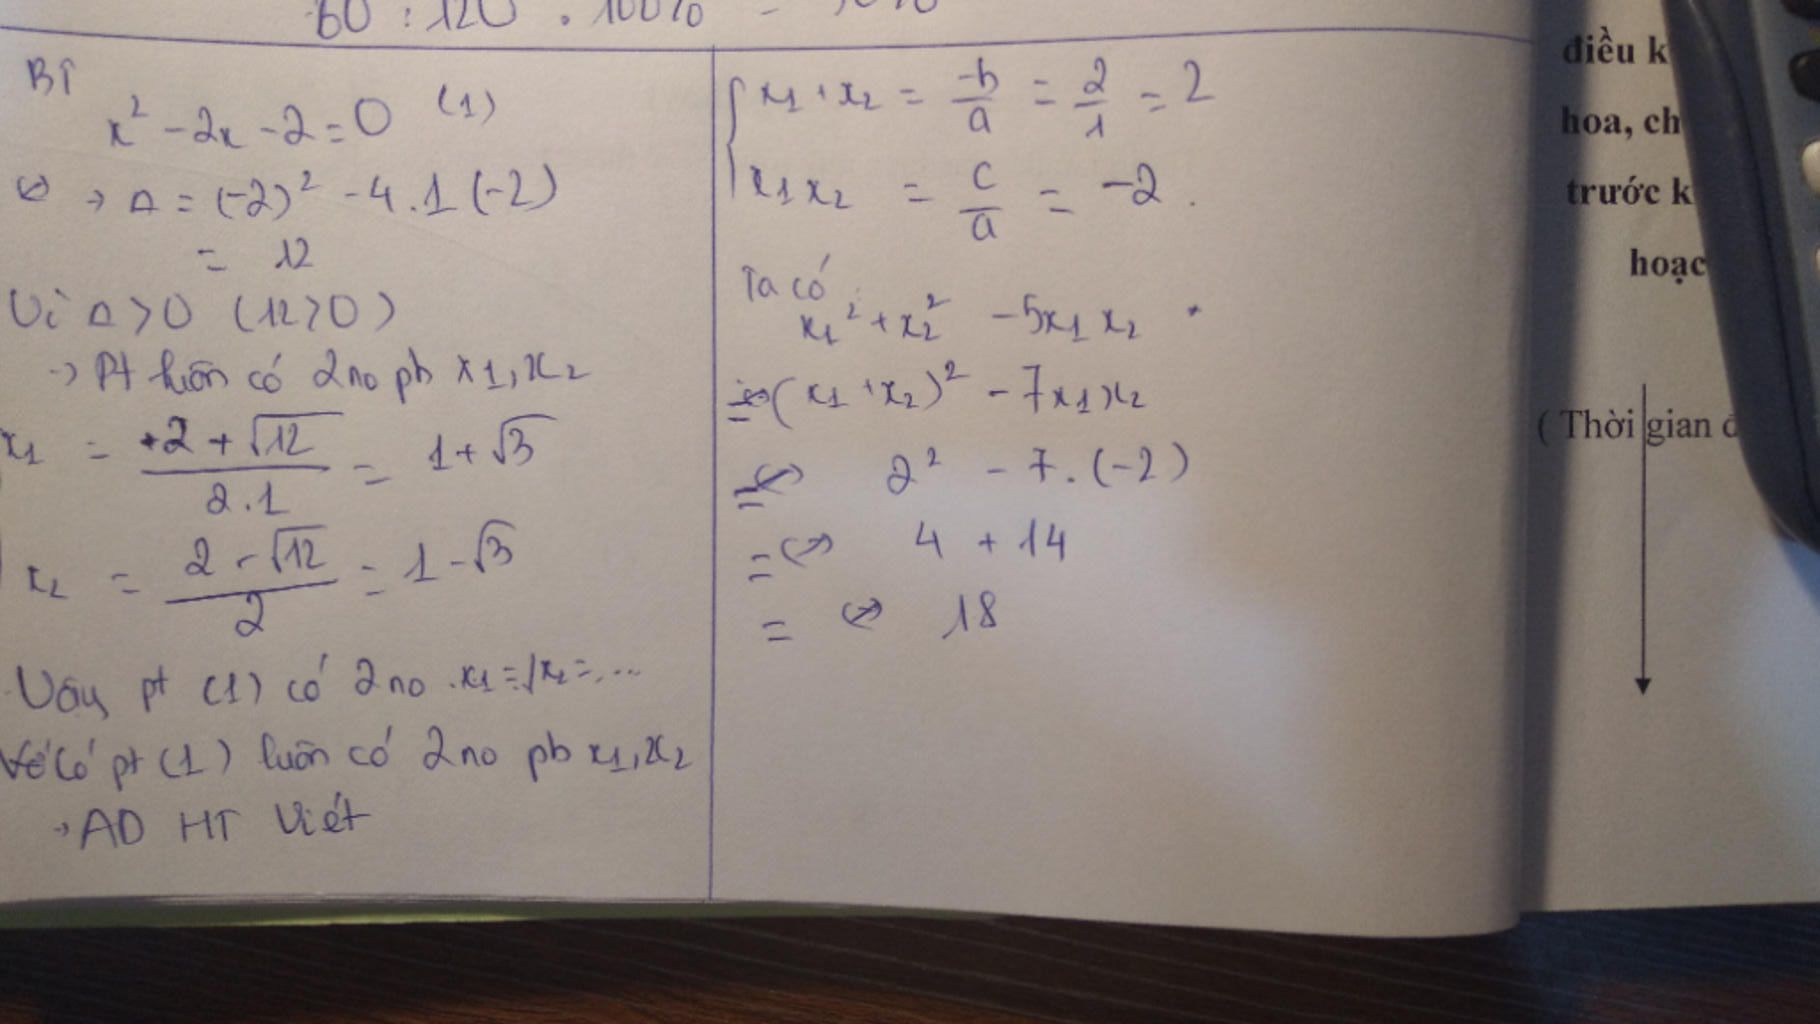 60 : 120 . 100% =
BI
x² - 2x - 2 = 0 (1)
⇔ → Δ = (-2)² - 4.1(-2)
= 12
Vì Δ > 0 (12 > 0)
→ Pt luôn có 2 no pb x1, x2
x1 = +2 + √12 / 2.1 = 1 + √3
x2 = 2 - √12 / 2 = 1 - √3
Vậy pt (1) có 2 no x1 = , x2 = ...
có pt (1) luôn có 2 no pb x1, x2
→ AD HT Viét
{ x1 + x2 = -b/a = 2/1 = 2
x1x2 = c/a = -2.
Ta có:
x1² + x2² - 5x1x2
= (x1 + x2)² - 7x1x2
= ⇔ 2² - 7.(-2)
= ⇔ 4 + 14
= ⇔ 18
điều k
hoa, ch
trước k
hoạc
( Thời gian